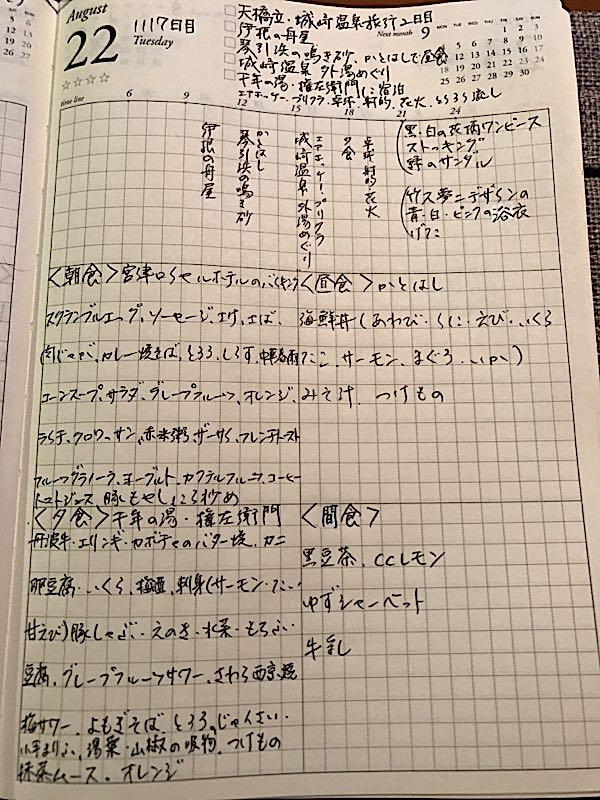 August
22
Tuesday
1117日目
□天橋立・城崎温泉旅行2日目
□伊根の舟屋
□琴引浜の鳴き砂、かとはしで昼食
□城崎温泉 外湯めぐり
□千年の湯・権左衛門に宿泊
エアホッケー・プリクラ・卓球・射的・花火
Next month 9
MON TUE WED THU FRI SAT SUN
☆☆☆☆
time line 6 9 12 15 18 21 24
伊根の舟屋
琴引浜の鳴き砂
かとはし
城崎温泉 外湯めぐり
エアホッケー・プリクラ
夕食
卓球・射的・花火
黒・白の花柄ワンピース
ストッキング
緑のサンダル
竹久夢二デザインの
青・白・ピンクの浴衣
げた
<朝食>宮津ロイヤルホテルのバイキング
スクランブルエッグ、ソーセージ、エビ、さば、
肉じゃが、カレー焼きそば、とろろ、しらす、中華春雨
コーンスープ、サラダ、グレープフルーツ、オレンジ、
クロワッサン、赤米粥、ザーサイ、フレンチトースト
フルーツグラノーラ、ヨーグルト、カクテルフルーツ、コーヒー
トマトジュース、豚もやし
<昼食>かとはし
海鮮丼(あわび・うに・えび・いくら
たこ、サーモン、まぐろ、いか)
みそ汁 つけもの
<夕食>千年の湯・権左衛門
丹波牛・エリンギ・カボチャのバター焼、カニ
卵豆腐・いくら、梅酒、刺身(サーモン・たい
甘えび)豚しゃぶ・えのき・水菜・もちぶた
豆腐、グレープフルーツサワー、さわら西京焼
梅サワー、よもぎそば とろろ、じゅんさい・
湯葉・山椒の吸物、つけもの
抹茶ムース、オレンジ
<間食>
黒豆茶、CCレモン
ゆずシャーベット
牛乳